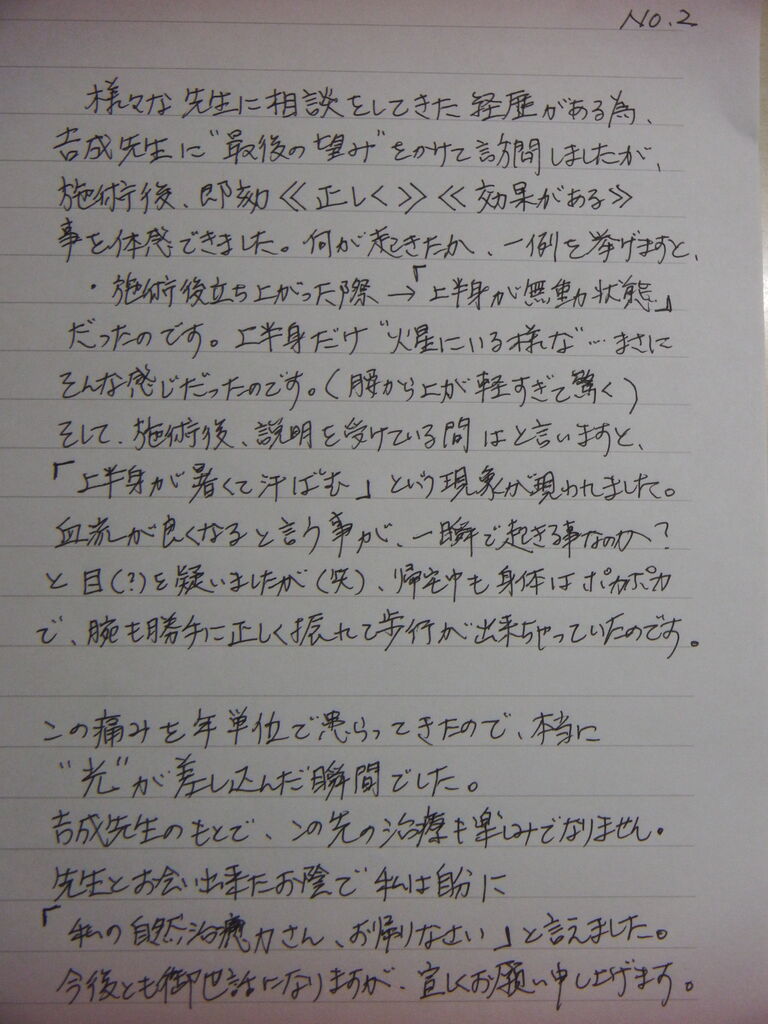 NO.2
様々な先生に相談をしてきた経歴がある為、
吉成先生に"最後の望み"をかけて訪問しましたが、
施術後、即効≪正しく≫≪効果がある≫
事を体感できました。何が起きたか、一例を挙げますと、
・施術後立ち上がった際→「上半身が無動状態」
だったのです。上半身だけ"火星にいる様な"…まさに
そんな感じだったのです。(腰から上が軽すぎて驚く)
そして、施術後、説明を受けている間はと言いますと、
「上半身が暑くて汗ばむ」という現象が現われました。
血流が良くなると言う事が、一瞬で起きる事なのか?
と目(?)を疑いましたが(笑)、帰宅中も身体はポカポカ
で、腕も勝手に正しく振れて歩行が出来ちゃっていたのです。
この痛みを年単位で患らってきたので、本当に
"光"が差し込んだ瞬間でした。
吉成先生のもとで、この先の治療も楽しみでなりません。
先生とお会い出来たお陰で私は自分に
「私の自然治癒力さん、お帰りなさい」と言えました。
今後とも御世話になりますが、宜しくお願い申し上げます。